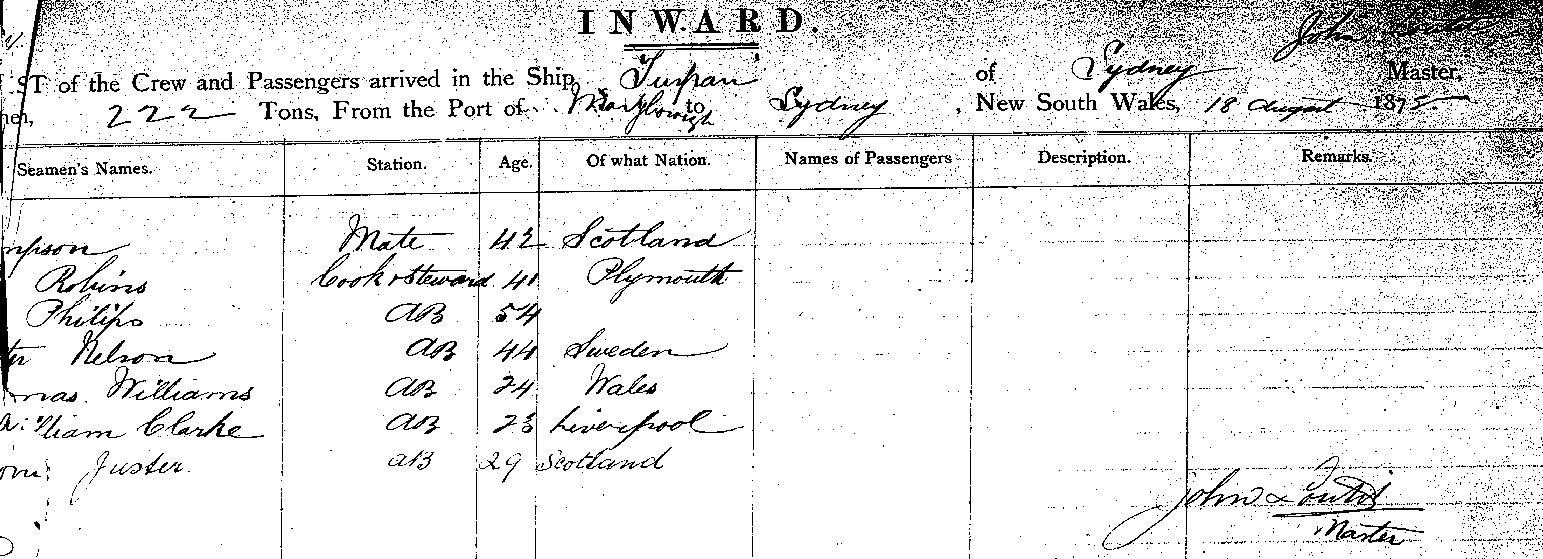 INWARD.
ST of the Crew and Passengers arrived in the Ship, of Sydney Master,
222 Tons, From the Port of Maryborough to Sydney, New South Wales, 18 August 1875
Seamen's Names. Station. Age. Of what Nation. Names of Passengers Description. Remarks.
mpson Mate 42 Scotland
Robins Cook & Steward 41 Plymouth
Philips AB 54
ter Nelson AB 44 Sweden
mas Williams AB 24 Wales
William Clarke AB 23 Liverpool
Juster. AB 29 Scotland
John
Master